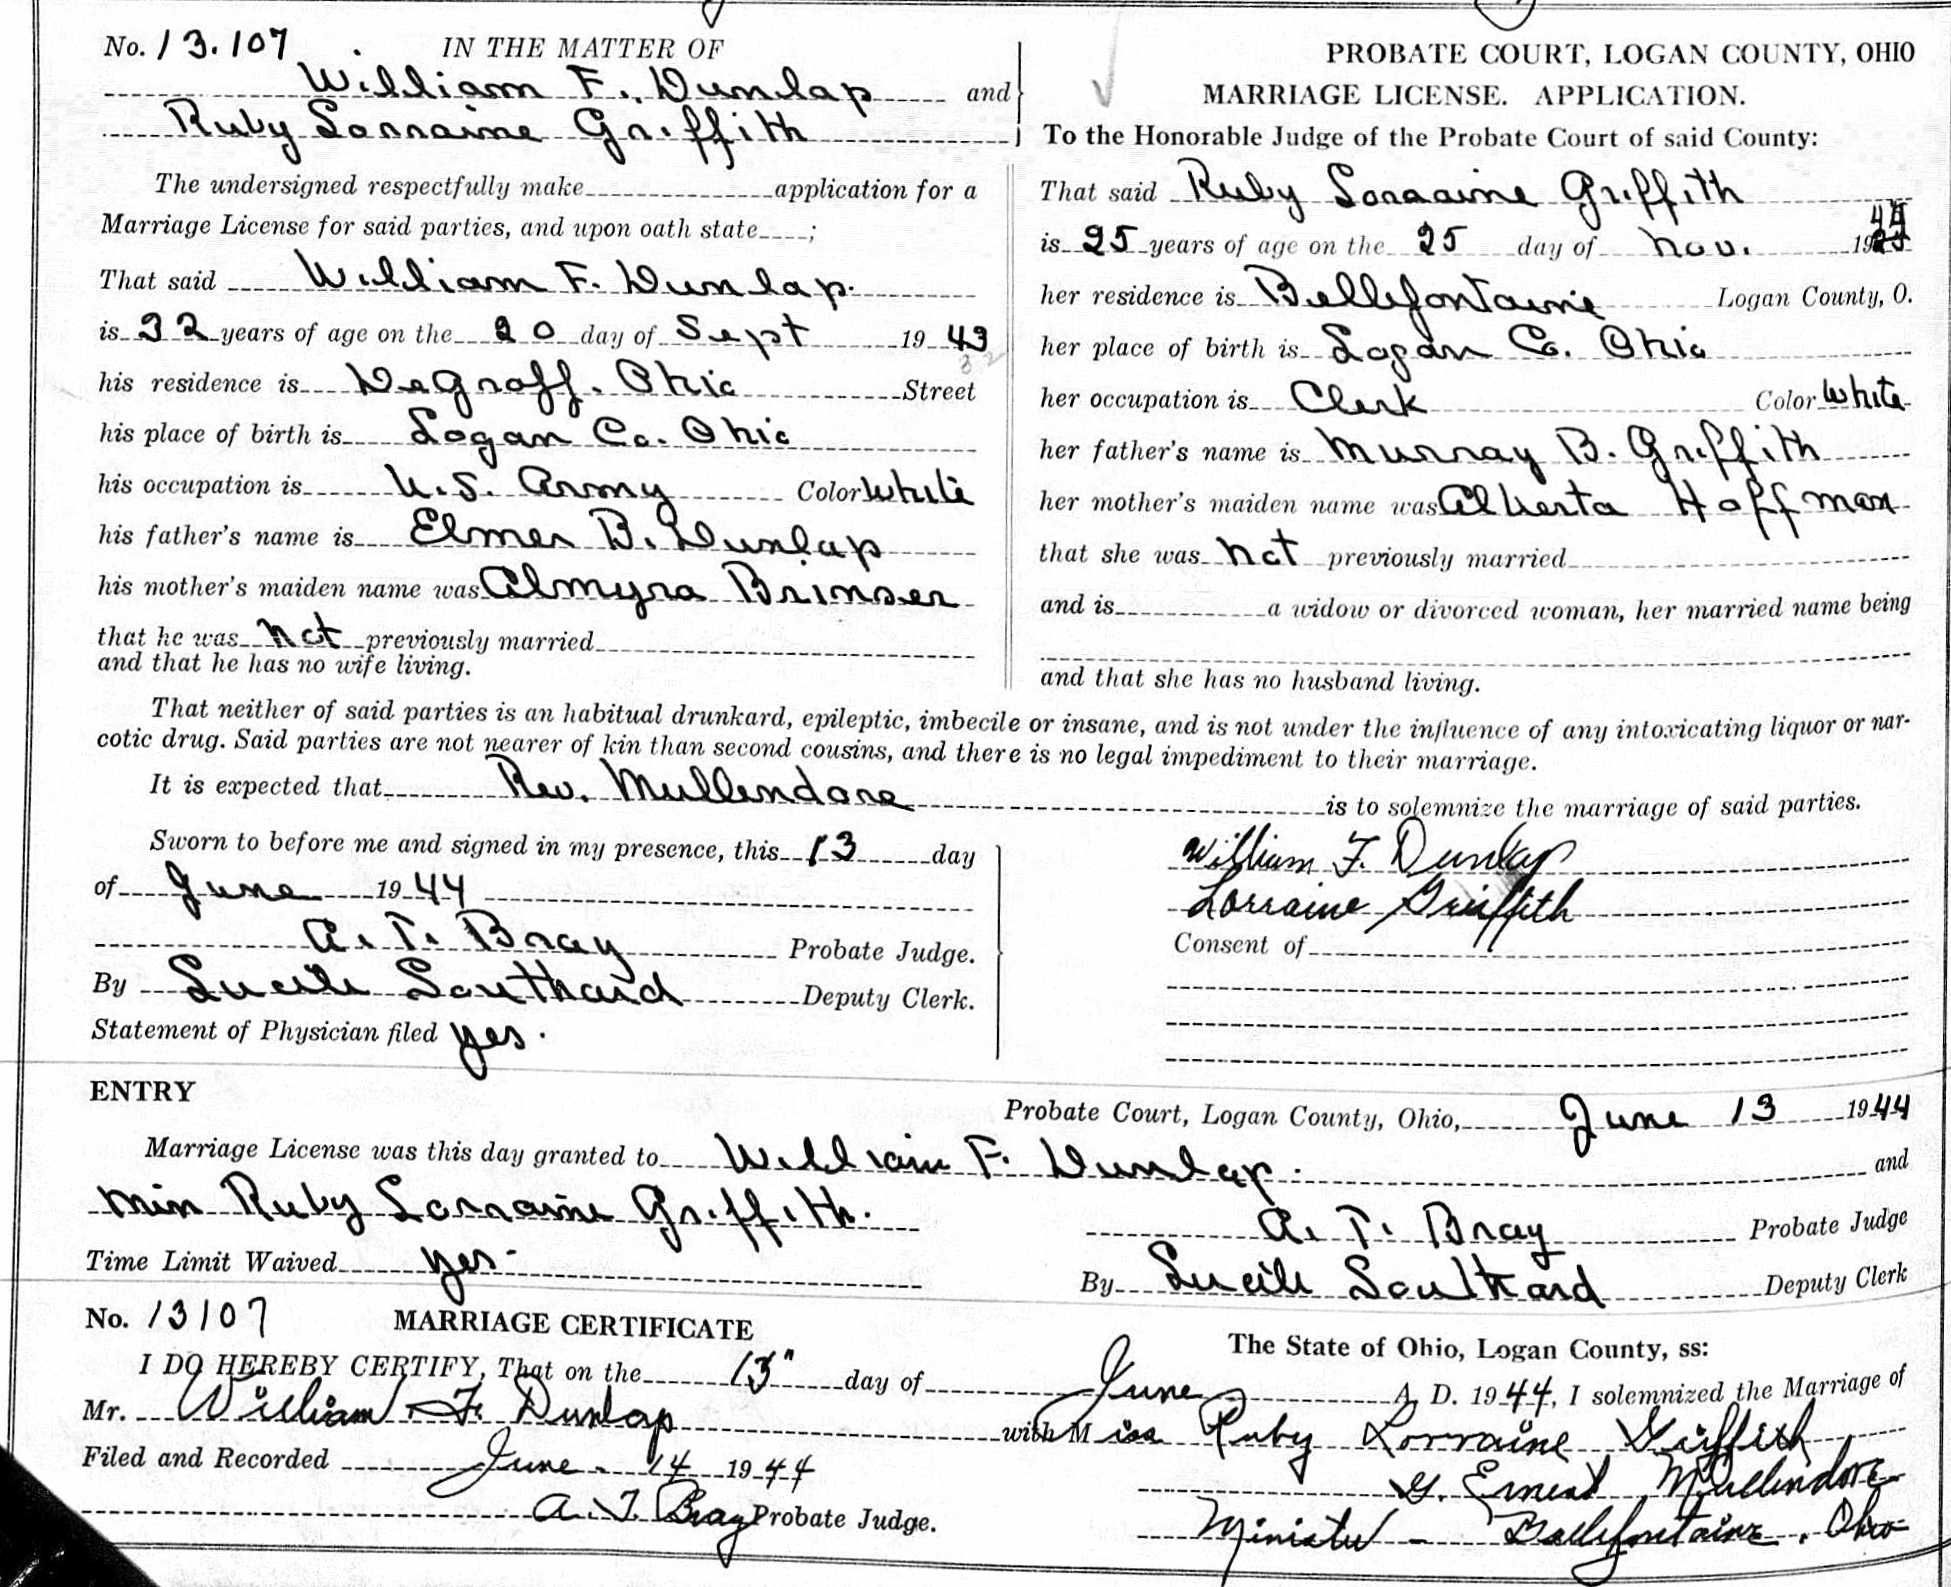 No. 13.107 IN THE MATTER OF
William F. Dunlap and
Ruby Lorraine Griffith
PROBATE COURT, LOGAN COUNTY, OHIO
MARRIAGE LICENSE. APPLICATION.
To the Honorable Judge of the Probate Court of said County:
The undersigned respectfully make application for a
Marriage License for said parties, and upon oath state ;
That said William F. Dunlap.
is 32 years of age on the 20 day of Sept 19 43
32
his residence is DeGraff. Ohio Street
his place of birth is Logan Co. Ohio
his occupation is U.S. Army Color White
his father's name is Elmer B. Dunlap
his mother's maiden name was Almyra Brinser
that he was not previously married
and that he has no wife living.
That said Ruby Lorraine Griffith
is 25 years of age on the 25 day of Nov. 19 44
her residence is Bellefontaine Logan County, O.
her place of birth is Logan Co. Ohio
her occupation is Clerk Color White
her father's name is Murray B. Griffith
her mother's maiden name was Alberta Hoffman
that she was not previously married
and is a widow or divorced woman, her married name being
and that she has no husband living.
That neither of said parties is an habitual drunkard, epileptic, imbecile or insane, and is not under the influence of any intoxicating liquor or nar-
cotic drug. Said parties are not nearer of kin than second cousins, and there is no legal impediment to their marriage.
It is expected that Rev. Mullendore is to solemnize the marriage of said parties.
Sworn to before me and signed in my presence, this 13 day
of June 19 44
A. T. Bray Probate Judge.
By Lucile Southard Deputy Clerk.
Statement of Physician filed yes.
William F. Dunlap
Lorraine Griffith
Consent of
ENTRY
Probate Court, Logan County, Ohio, June 13 19 44
Marriage License was this day granted to William F. Dunlap. and
Miss Ruby Lorraine Griffith.
Time Limit Waived yes.
A. T. Bray Probate Judge
By Lucile Southard Deputy Clerk
No. 13107 MARRIAGE CERTIFICATE
The State of Ohio, Logan County, ss:
I DO HEREBY CERTIFY, That on the 13" day of June A. D. 19 44, I solemnized the Marriage of
Mr. William F. Dunlap with Miss Ruby Lorraine Griffith
Filed and Recorded June 14 19 44
A. T. Bray Probate Judge.
G. Ernest Mullendore
Minister - Bellefontaine, Ohio